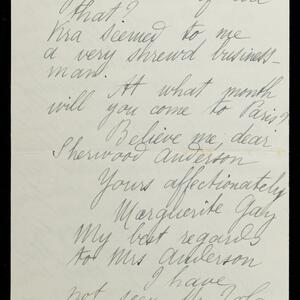 that?
Kra seemed to me
a very shrewd business-
man.
At what month
will you come to Paris?
Believe me, dear
Sherwood Anderson
Yours affectionately
Marguerite Gay
My best regards
to Mrs Anderson
I have
not seen